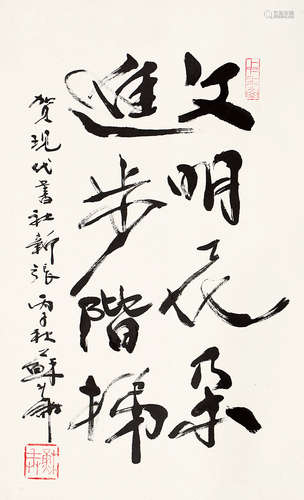 文明花朵
進步階梯
賀現代書社新張 丙子秋 蘇華